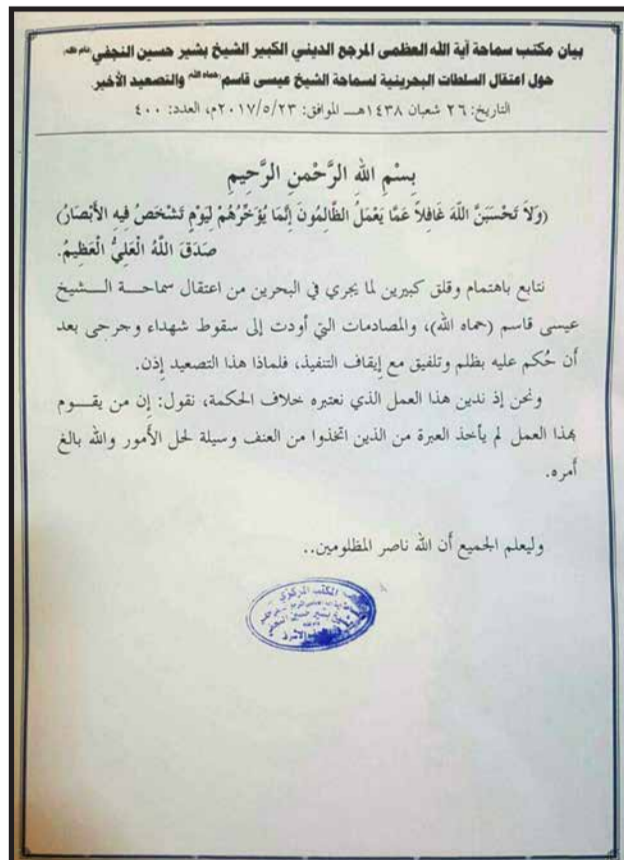 بيان مكتب سماحة آية الله العظمى المرجع الديني الكبير الشيخ بشير حسين النجفي (دام ظله)
حول اعتقال السلطات البحرينية لسماحة الشيخ عيسى قاسم (حماه الله) والتصعيد الأخير.
التاريخ: ٢٦ شعبان ١٤٣٨هـ الموافق: ٢٠١٧/٥/٢٣م، العدد: ٤٠٠
بِسْمِ اللهِ الرَّحْمنِ الرَّحِيمِ
(وَلاَ تَحْسَبَنَّ اللّهَ غَافِلاً عَمَّا يَعْمَلُ الظَّالِمُونَ إِنَّمَا يُؤَخِّرُهُمْ لِيَوْمٍ تَشْخَصُ فِيهِ الأَبْصَارُ)
صَدَقَ اللَّهُ الْعَلِيُّ الْعَظِيمُ.
نتابع باهتمام وقلق كبيرين لما يجري في البحرين من اعتقال سماحة الشيخ
عيسى قاسم (حماه الله)، والمصادمات التي أودت إلى سقوط شهداء وجرحى بعد
أن حُكم عليه بظلم وتلفيق مع إيقاف التنفيذ، فلماذا هذا التصعيد إذن.
ونحن إذ ندين هذا العمل الذي نعتبره خلاف الحكمة، نقول: إن من يقوم
بهذا العمل لم يأخذ العبرة من الذين اتخذوا من العنف وسيلة لحل الأمور والله بالغ
أمره.
وليعلم الجميع أن الله ناصر المظلومين..
المكتب المركزي
بشير حسين النجفي